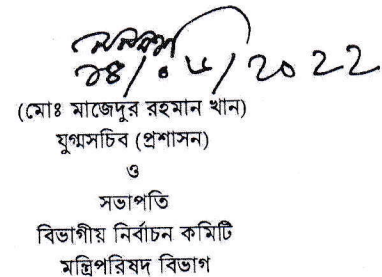 ১৪/০৮/2022
(মোঃ মাজেদুর রহমান খান)
যুগ্মসচিব (প্রশাসন)
ও
সভাপতি
বিভাগীয় নির্বাচন কমিটি
মন্ত্রিপরিষদ বিভাগ